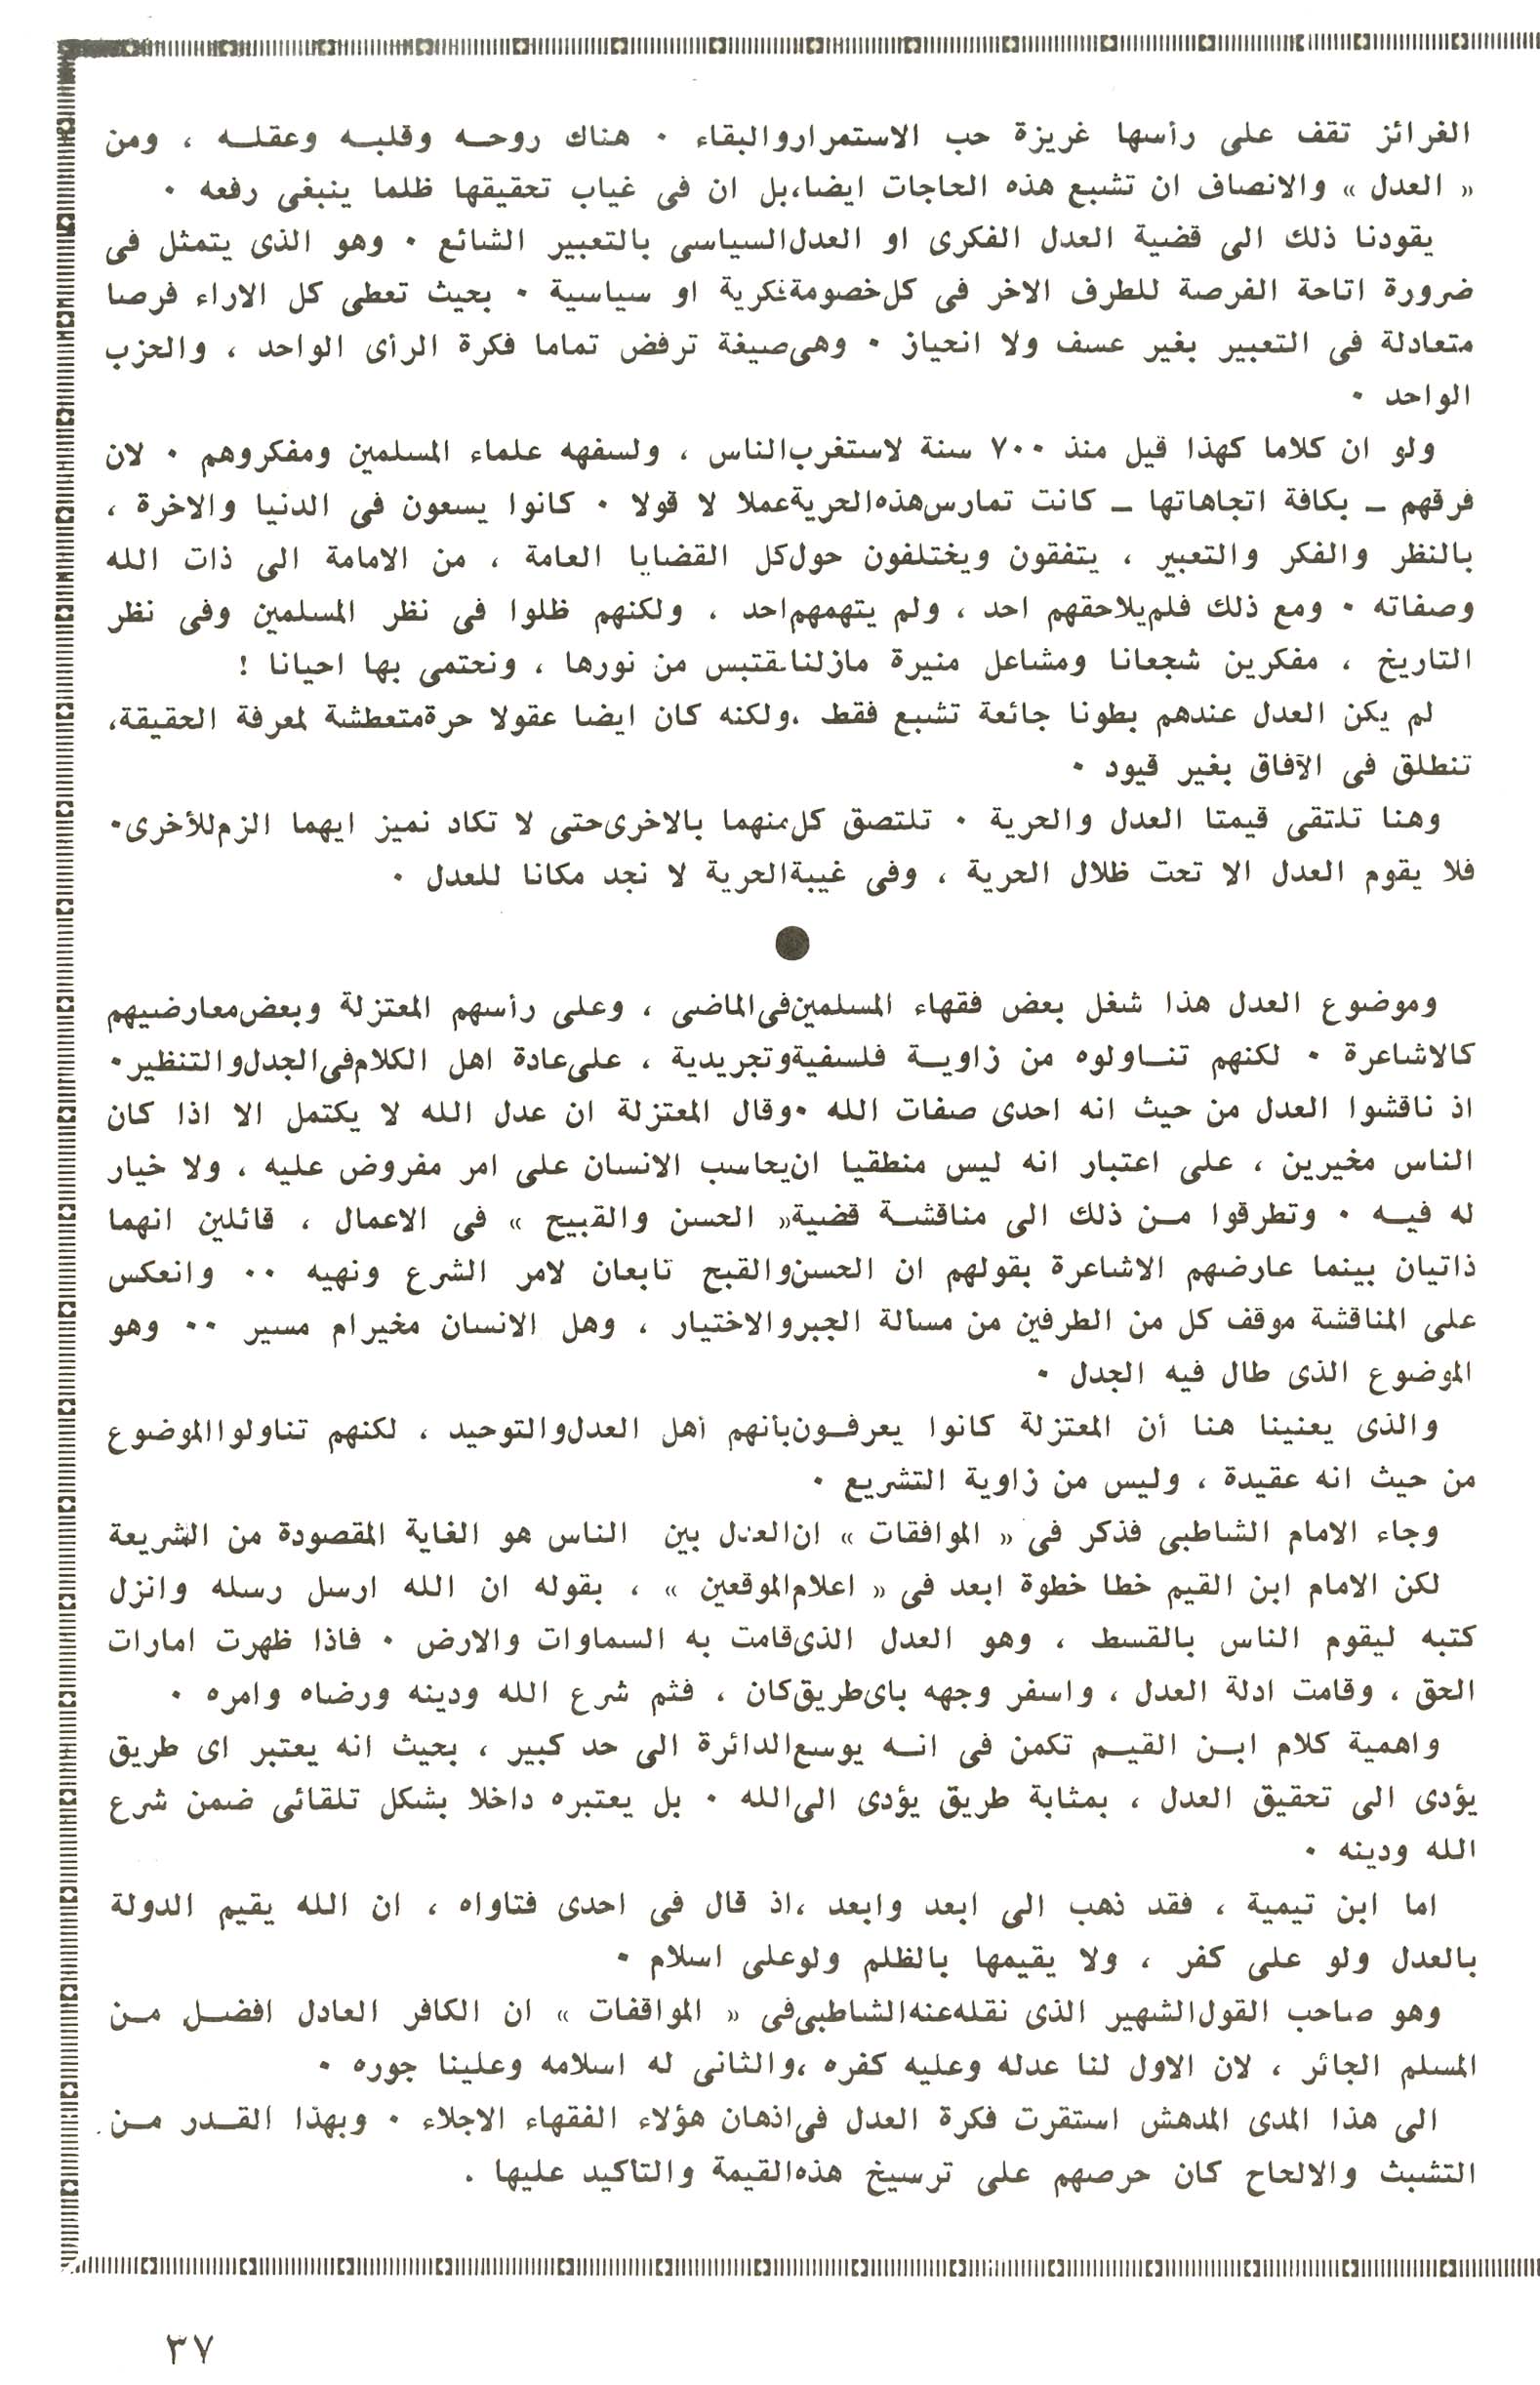 الغرائز تقف على رأسها غريزة حب الاستمرار والبقاء ٠ هناك روحه وقلبه وعقله ، ومن
« العدل » والانصاف ان تشبع هذه الحاجات ايضا، بل ان فى غياب تحقيقها ظلما ينبغى رفعه ٠
يقودنا ذلك الى قضية العدل الفكرى او العدل السياسى بالتعبير الشائع ٠ وهو الذى يتمثل فى
ضرورة اتاحة الفرصة للطرف الاخر فى كل خصومة فكرية او سياسية ٠ بحيث تعطى كل الاراء فرصا
متعادلة فى التعبير بغير عسف ولا انحياز ٠ وهى صيغة ترفض تماما فكرة الرأى الواحد ، والحزب
الواحد ٠
ولو ان كلاما كهذا قيل منذ ٧٠٠ سنة لاستغرب الناس ، ولسفهه علماء المسلمين ومفكروهم ٠ لان
فرقهم ــ بكافة اتجاهاتها ــ كانت تمارس هذه الحرية عملا لا قولا ٠ كانوا يسعون فى الدنيا والاخرة ،
بالنظر والفكر والتعبير ، يتفقون ويختلفون حول كل القضايا العامة ، من الامامة الى ذات الله
وصفاته ٠ ومع ذلك فلم يلاحقهم احد ، ولم يتهمهم احد ، ولكنهم ظلوا فى نظر المسلمين وفى نظر
التاريخ ، مفكرين شجعانا ومشاعل منيرة مازلنا نقتبس من نورها ، ونحتمى بها احيانا !
لم يكن العدل عندهم بطونا جائعة تشبع فقط ،ولكنه كان ايضا عقولا حرة متعطشة لمعرفة الحقيقة،
تنطلق فى الآفاق بغير قيود ٠
وهنا تلتقى قيمتا العدل والحرية ٠ تلتصق كل منهما بالاخرى حتى لا تكاد نميز ايهما الزم للأخرى٠
فلا يقوم العدل الا تحت ظلال الحرية ، وفى غيبة الحرية لا نجد مكانا للعدل ٠
وموضوع العدل هذا شغل بعض فقهاء المسلمين فى الماضى ، وعلى رأسهم المعتزلة وبعض معارضيهم
كالاشاعرة ٠ لكنهم تناولوه من زاوية فلسفية وتجريدية ، على عادة اهل الكلام فى الجدل والتنظير٠
اذ ناقشوا العدل من حيث انه احدى صفات الله ٠وقال المعتزلة ان عدل الله لا يكتمل الا اذا كان
الناس مخيرين ، على اعتبار انه ليس منطقيا ان يحاسب الانسان على امر مفروض عليه ، ولا خيار
له فيه ٠ وتطرقوا من ذلك الى مناقشة قضية « الحسن والقبيح » فى الاعمال ، قائلين انهما
ذاتيان بينما عارضهم الاشاعرة بقولهم ان الحسن والقبح تابعان لامر الشرع ونهيه ٠٠ وانعكس
على المناقشة موقف كل من الطرفين من مسالة الجبر والاختيار ، وهل الانسان مخير ام مسير ٠٠ وهو
الموضوع الذى طال فيه الجدل ٠
والذى يعنينا هنا أن المعتزلة كانوا يعرفون بأنهم أهل العدل والتوحيد ، لكنهم تناولوا الموضوع
من حيث انه عقيدة ، وليس من زاوية التشريع ٠
وجاء الامام الشاطبى فذكر فى « الموافقات » ان العدل بين الناس هو الغاية المقصودة من الشريعة
لكن الامام ابن القيم خطا خطوة ابعد فى « اعلام الموقعين » ، بقوله ان الله ارسل رسله وانزل
كتبه ليقوم الناس بالقسط ، وهو العدل الذى قامت به السماوات والارض ٠ فاذا ظهرت امارات
الحق ، وقامت ادلة العدل ، واسفر وجهه باى طريق كان ، فثم شرع الله ودينه ورضاه وامره ٠
واهمية كلام ابن القيم تكمن فى انه يوسع الدائرة الى حد كبير ، بحيث انه يعتبر اى طريق
يؤدى الى تحقيق العدل ، بمثابة طريق يؤدى الى الله ٠ بل يعتبره داخلا بشكل تلقائى ضمن شرع
الله ودينه ٠
اما ابن تيمية ، فقد ذهب الى ابعد وابعد ،اذ قال فى احدى فتاواه ، ان الله يقيم الدولة
بالعدل ولو على كفر ، ولا يقيمها بالظلم ولو على اسلام ٠
وهو صاحب القول الشهير الذى نقله عنه الشاطبى فى « المواقفات » ان الكافر العادل افضل من
المسلم الجائر ، لان الاول لنا عدله وعليه كفره ،والثانى له اسلامه وعلينا جوره ٠
الى هذا المدى المدهش استقرت فكرة العدل فى اذهان هؤلاء الفقهاء الاجلاء ٠ وبهذا القدر من
التشبث والالحاح كان حرصهم على ترسيخ هذه القيمة والتاكيد عليها .
٣٧